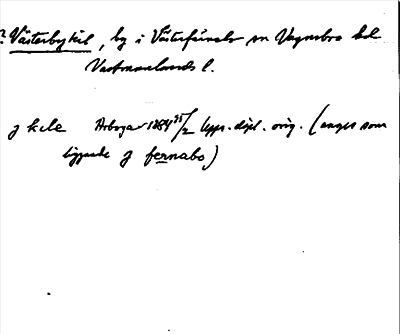 ? Västerbykil, by i Västerfärnebo sn Vagnsbro hd
Västmanlands l.
j kele Arboga 1364 25/2 Upps. dipl. orig. (anges som
liggande j fernabo)